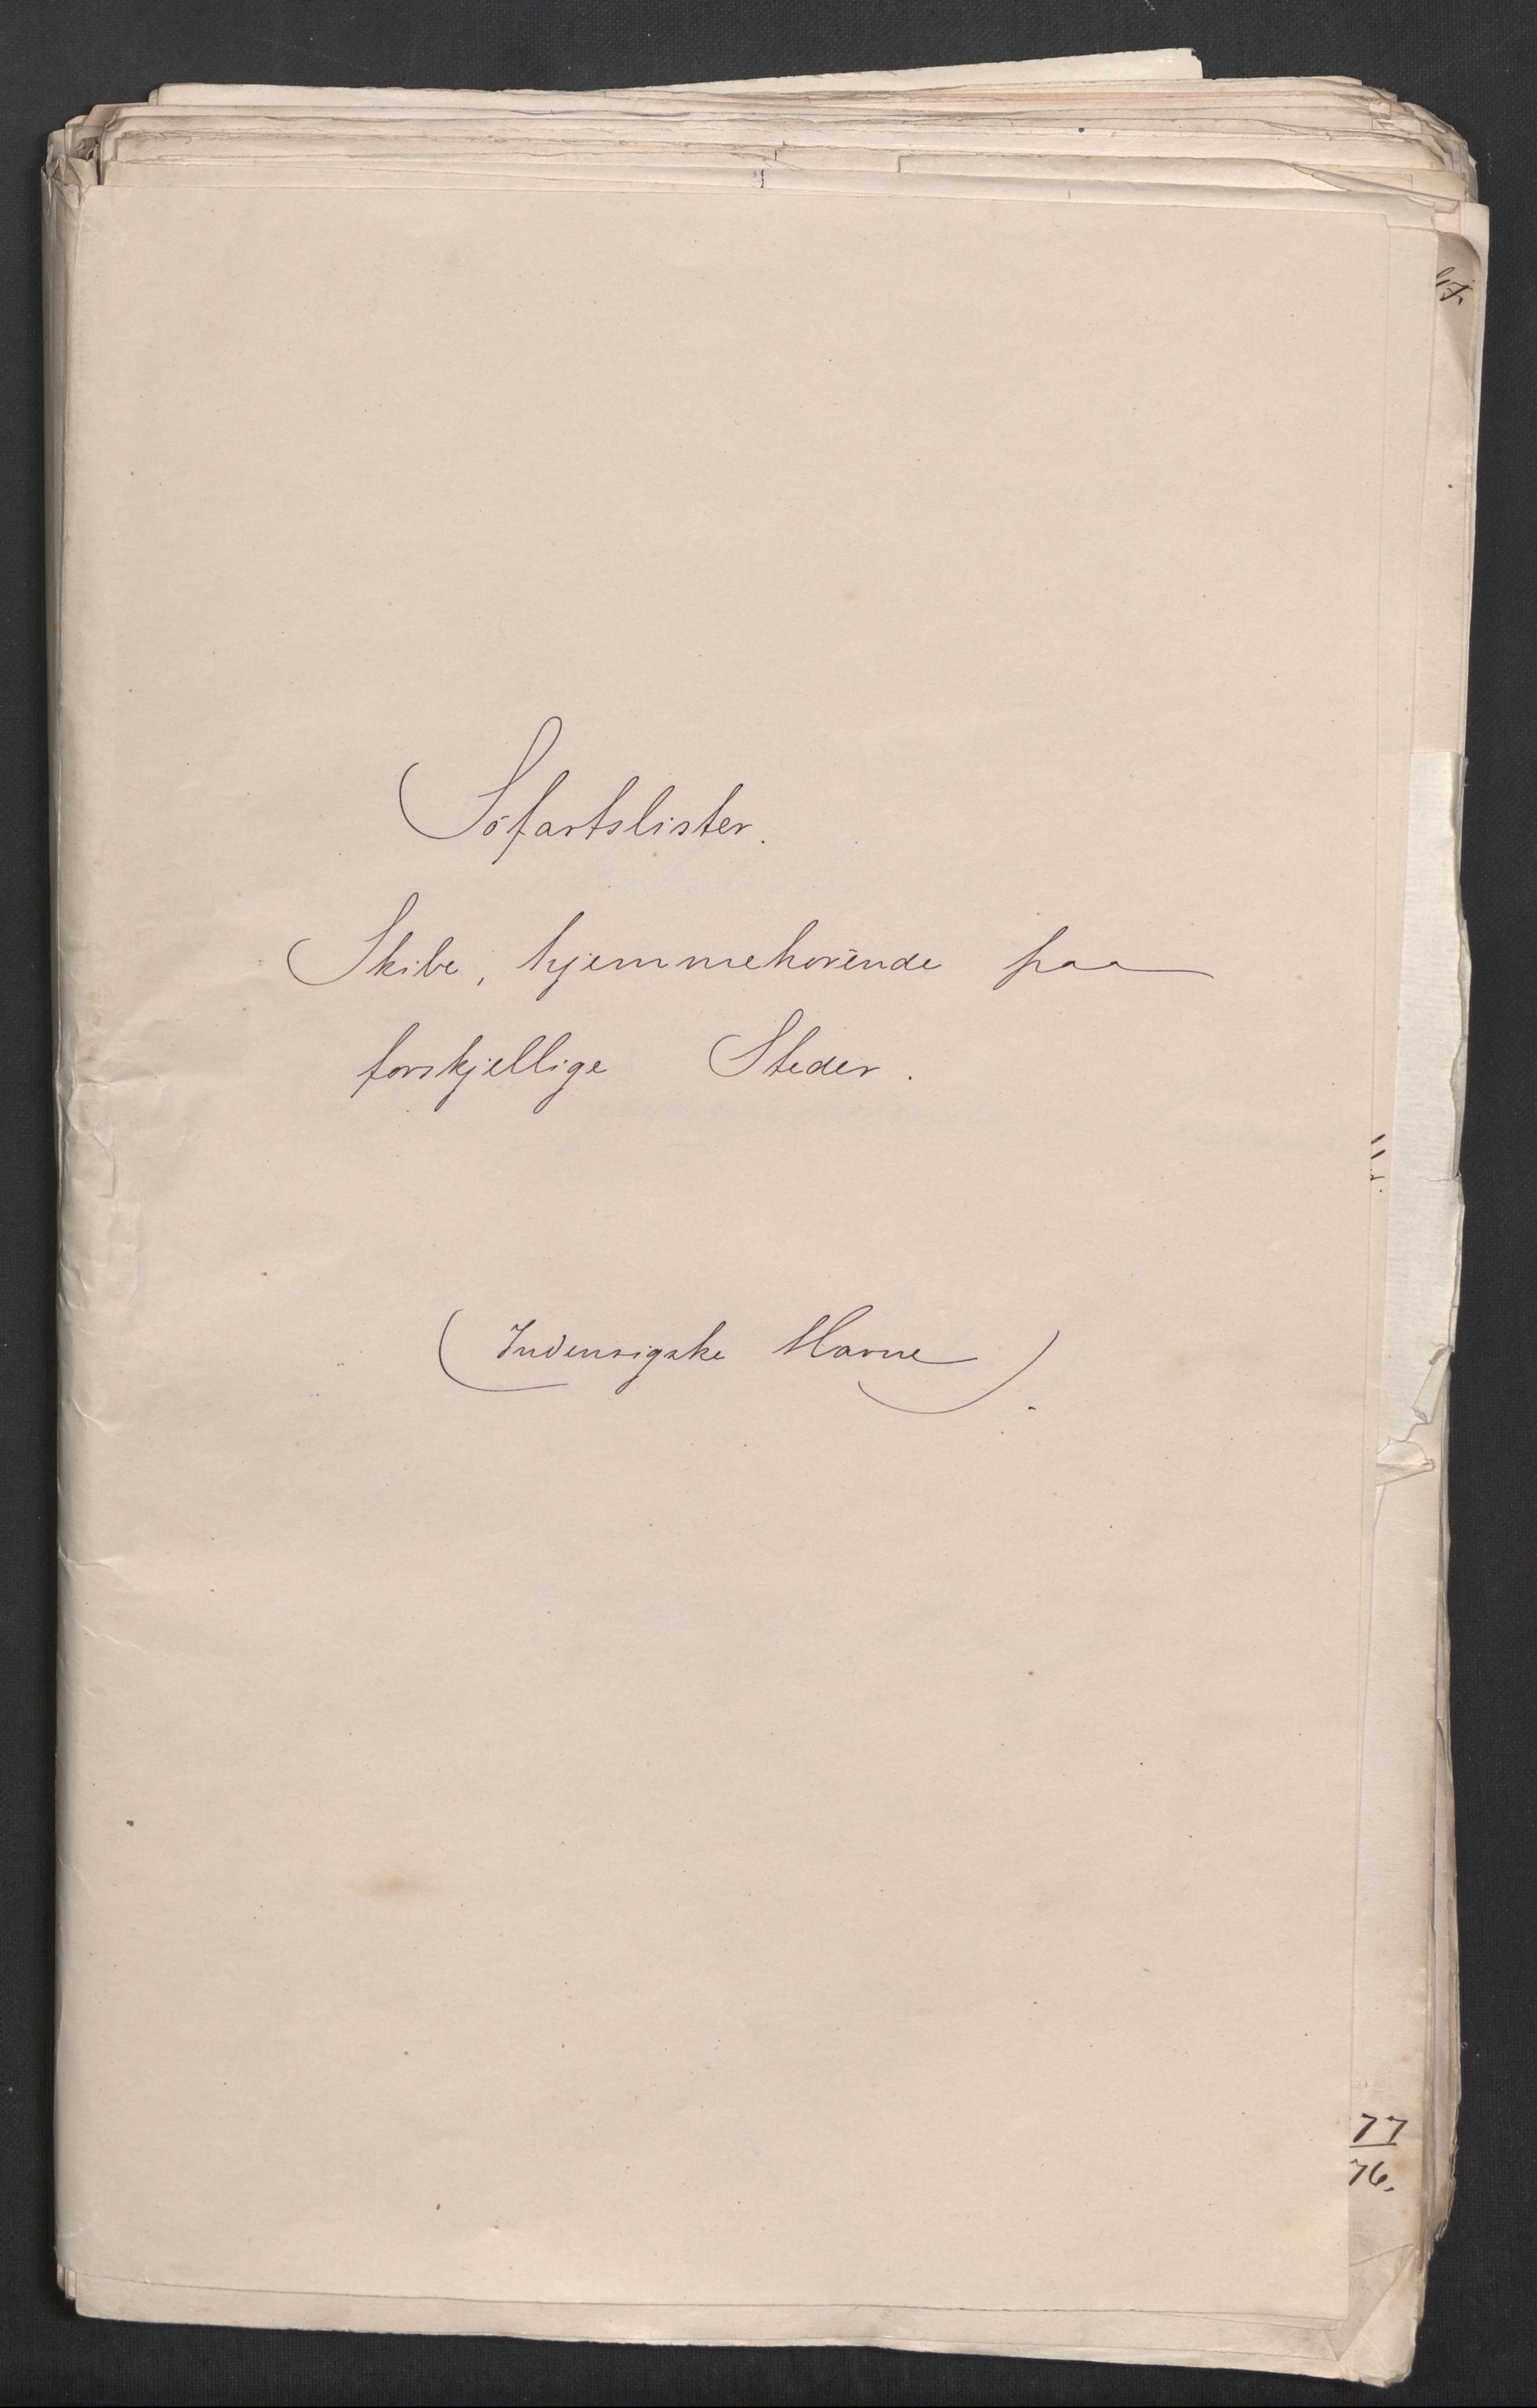 Söfartslister.
Skibe, hjemmehorende paa
forskjellige Steder.
(Indenrigske Havne).
77
76.